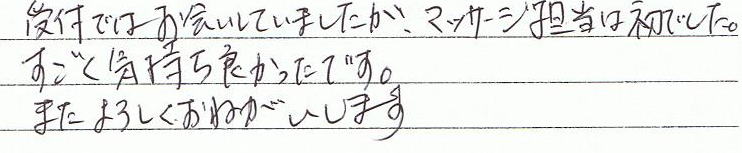 受付ではお会いしていましたが、マッサージ担当は初でした。
すごく気持ち良かったです。
またよろしくおねがいします